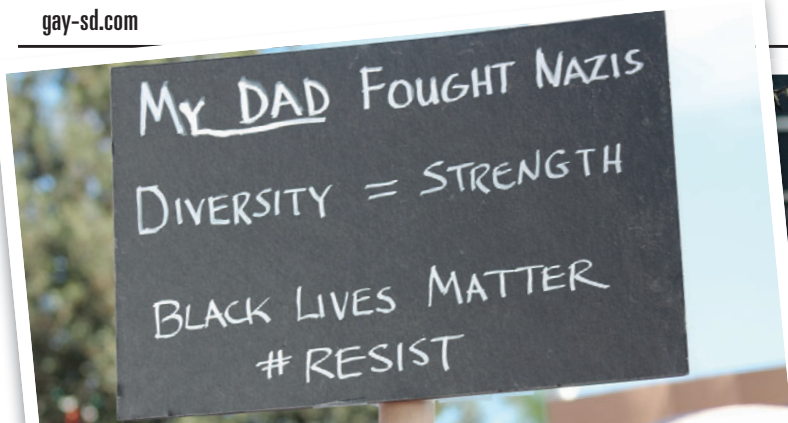 gay-sd.com
My DAD FOUGHT NAZIS
DIVERSITY = STRENGTH
BLACK LIVES MATTER
# RESIST